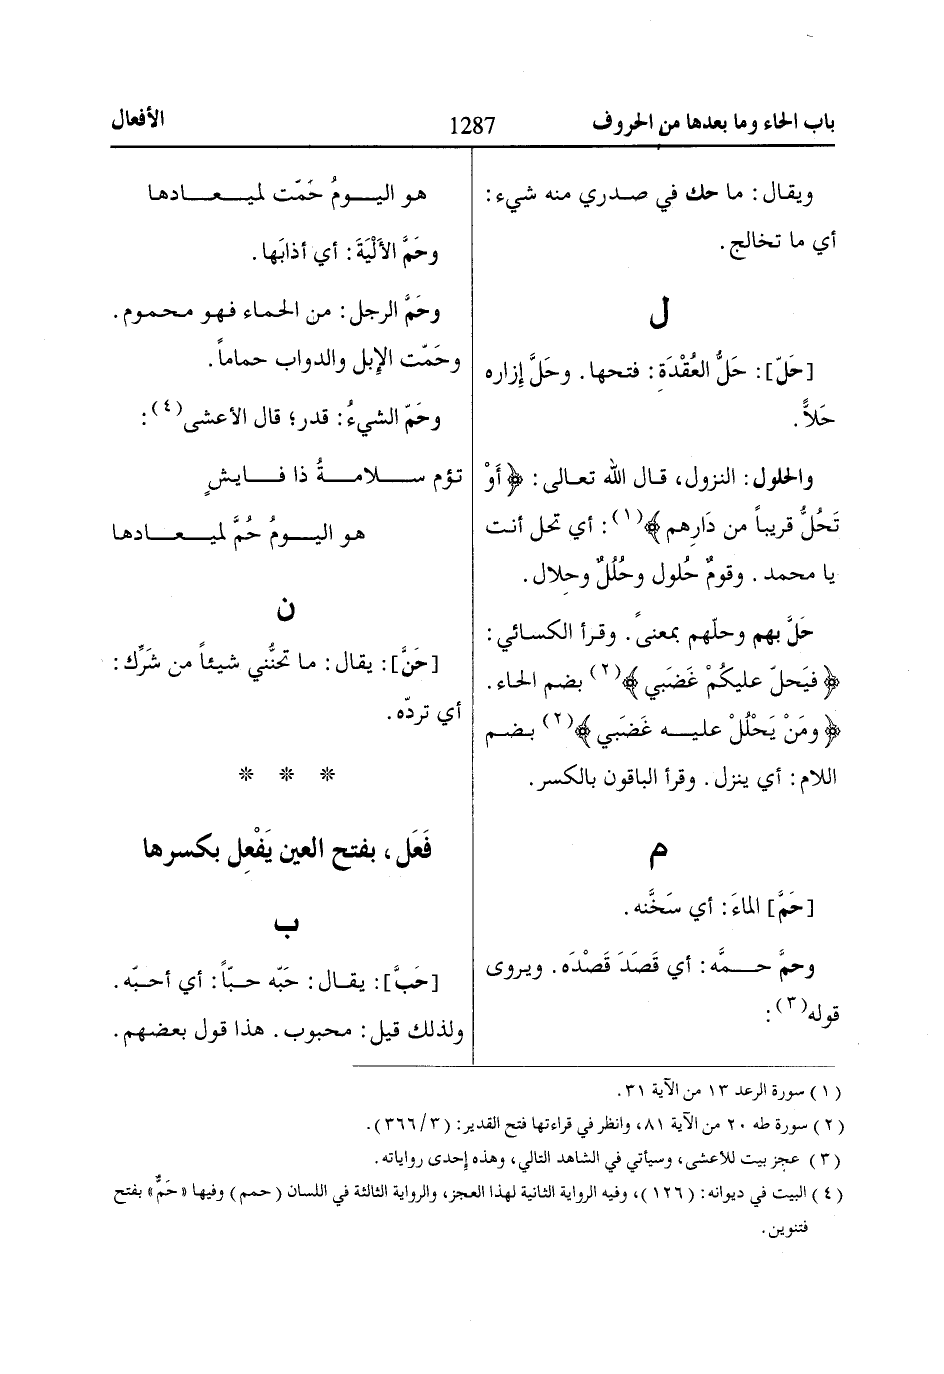 باب الحاء وما بعدها من الحروف
1287
الأفعال
ويقال: ما حك في صدري منه شيء:
أي ما تخالج.
ل
[حَلّ]: حَلُّ العُقْدَةِ: فتحها. وحَلَّ إزاره
حَلاًّ.
والحلول: النزول، قال الله تعالى: ﴿أَوْ
تَحُلُّ قريباً من دَارِهم﴾(١): أي تحل أنت
يا محمد. وقومٌ حُلول وحُلُلٌ وحِلال.
حَلَّ بهم وحلّهم بمعنىً. وقرأ الكسائي:
﴿فيَحلّ عليكُمْ غَضَبي﴾(٢) بضم الحاء.
﴿ومَنْ يَحْلُلْ عليه غَضَبي﴾(٢) بضم
اللام: أي ينزل. وقرأ الباقون بالكسر.
م
[حَمَّ] الماءَ: أي سَخَّنه.
وحمَّ حمَّه: أي قَصَدَ قَصْدَه. ويروى
قوله(٣):
هو اليومُ حُمَّت لميعادها
وحَمَّ الأَلْيَةَ: أي أذابَها.
وحُمَّ الرجل: من الحماء فهو محموم.
وحمّت الإبل والدواب حماماً.
وحُمّ الشيءُ: قدر؛ قال الأعشى(٤):
تؤم سلامةُ ذا فايشٍ
هو اليومُ حُمَّ لميعادها
ن
[حَنَّ]: يقال: ما تحنُّني شيئاً من شَرِّك:
أي تردّه.
* * *
فَعَل، بفتح العين يَفْعِل بكسرها
ب
[حَبَّ]: يقال: حَبّه حبّاً: أي أحبّه.
ولذلك قيل: محبوب. هذا قول بعضهم.
(١) سورة الرعد ١٣ من الآية ٣١.
(٢) سورة طه ٢٠ من الآية ٨١، وانظر في قراءتها فتح القدير: (٣/٣٦٦).
(٣) عجز بيت للأعشى، وسيأتي في الشاهد التالي، وهذه إحدى رواياته.
(٤) البيت في ديوانه: (١٢٦)، وفيه الرواية الثانية لهذا العجز، والرواية الثالثة في اللسان (حمم) وفيها «حَمٌّ» بفتح
فتنوين.